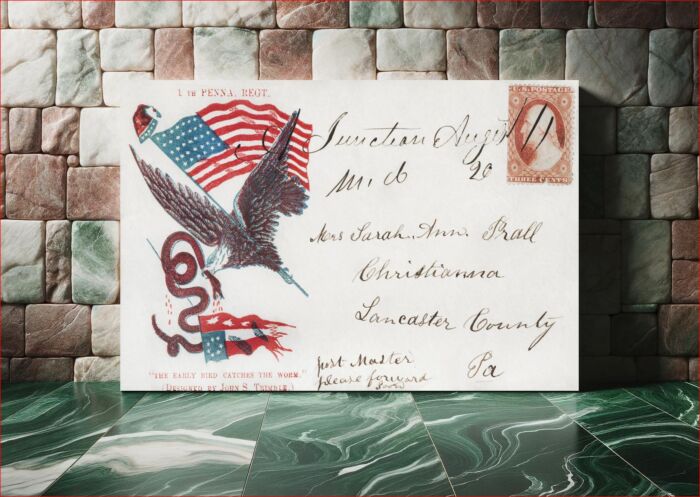 TH PENNA. REGT.
U.S. POSTAGE
THREE CENTS
Junction Augst 11
M.d 26
Mrs Sarah. Ann. Prall
Christianna
Lancaster County
Pa
Just Master
please forward
soon
"THE EARLY BIRD CATCHES THE WORM."
(DESIGNED BY JOHN S. TRIMBLE.)